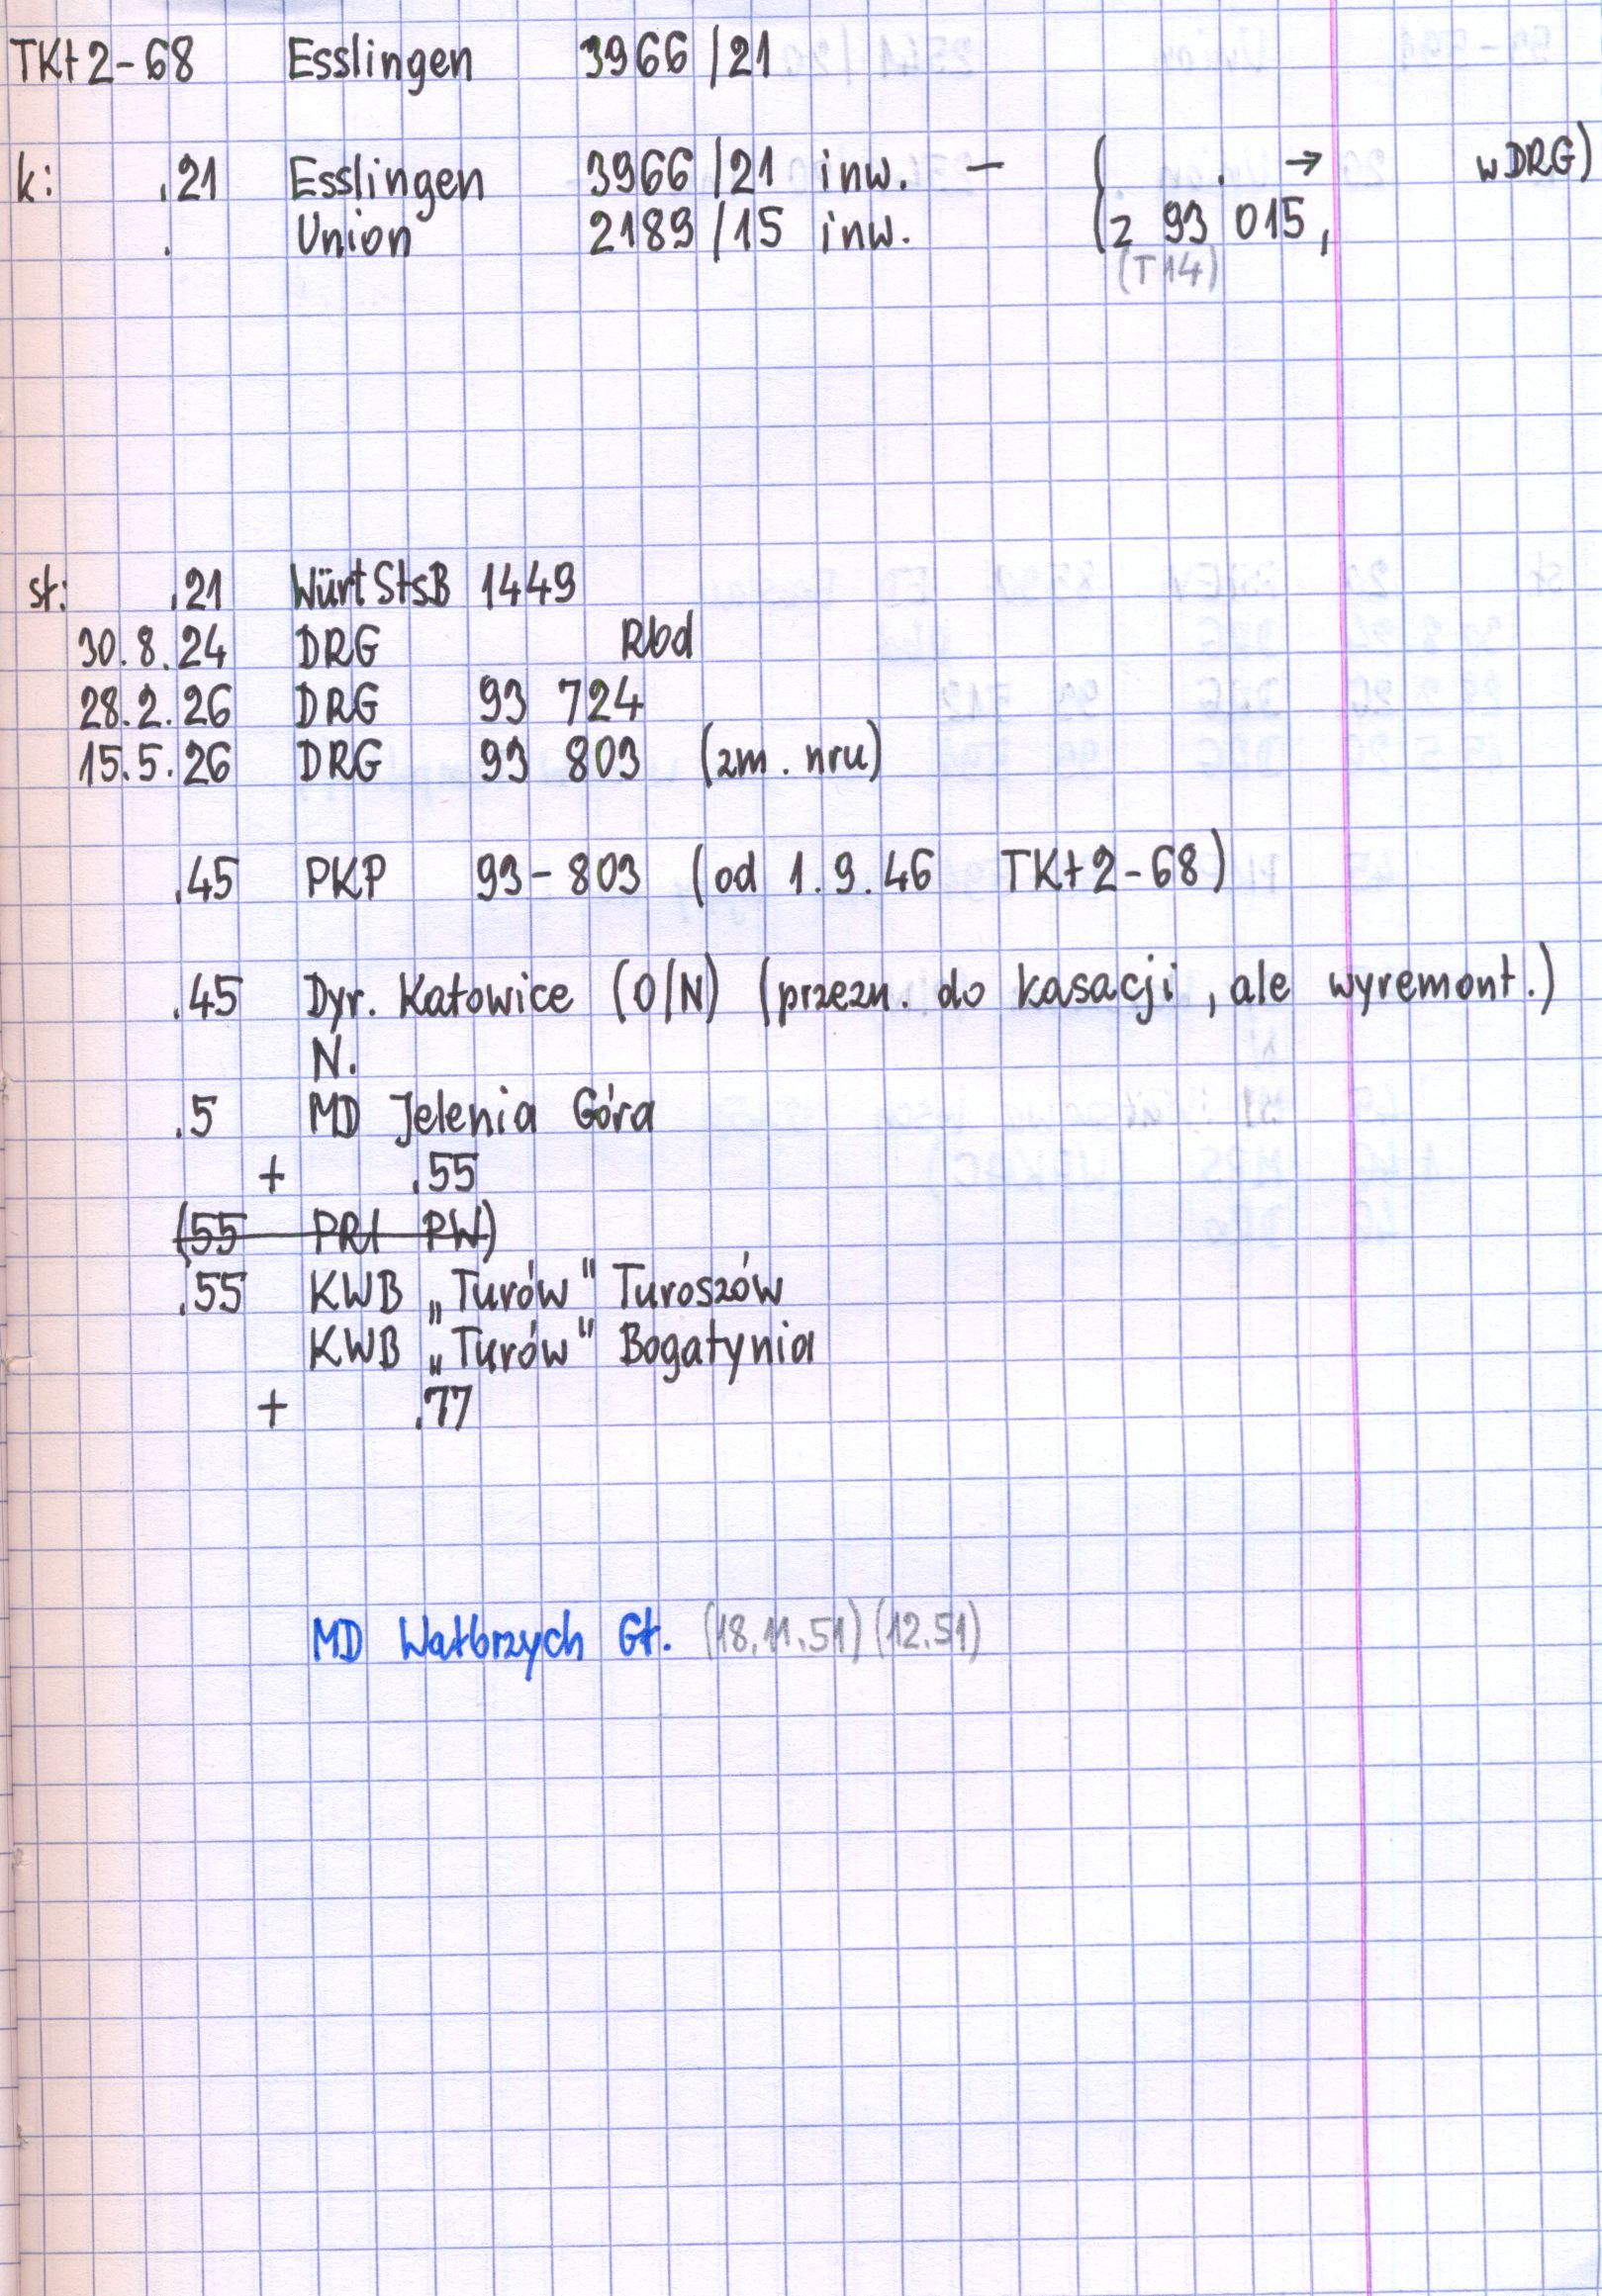 TKt2-68 Esslingen 3966/21
k: .21 Esslingen 3966/21 inw. - ( . → w DRG)
. Union 2189/15 inw. (z 93 015,
(T14)
st: .21 WürtStsB 1449
30.8.24 DRG Rbd
28.2.26 DRG 93 724
15.5.26 DRG 93 803 (zm. nru)
.45 PKP 93-803 (od 1.9.46 TKt2-68)
.45 Dyr. Katowice (O/N) (przezn. do kasacji, ale wyremont.)
N.
.5 MD Jelenia Góra
+ .55
(55 PRI PW)
.55 KWB „Turów" Turoszów
KWB „Turów" Bogatynia
+ .77
MD Wałbrzych Gł. (18.11.51) (12.51)